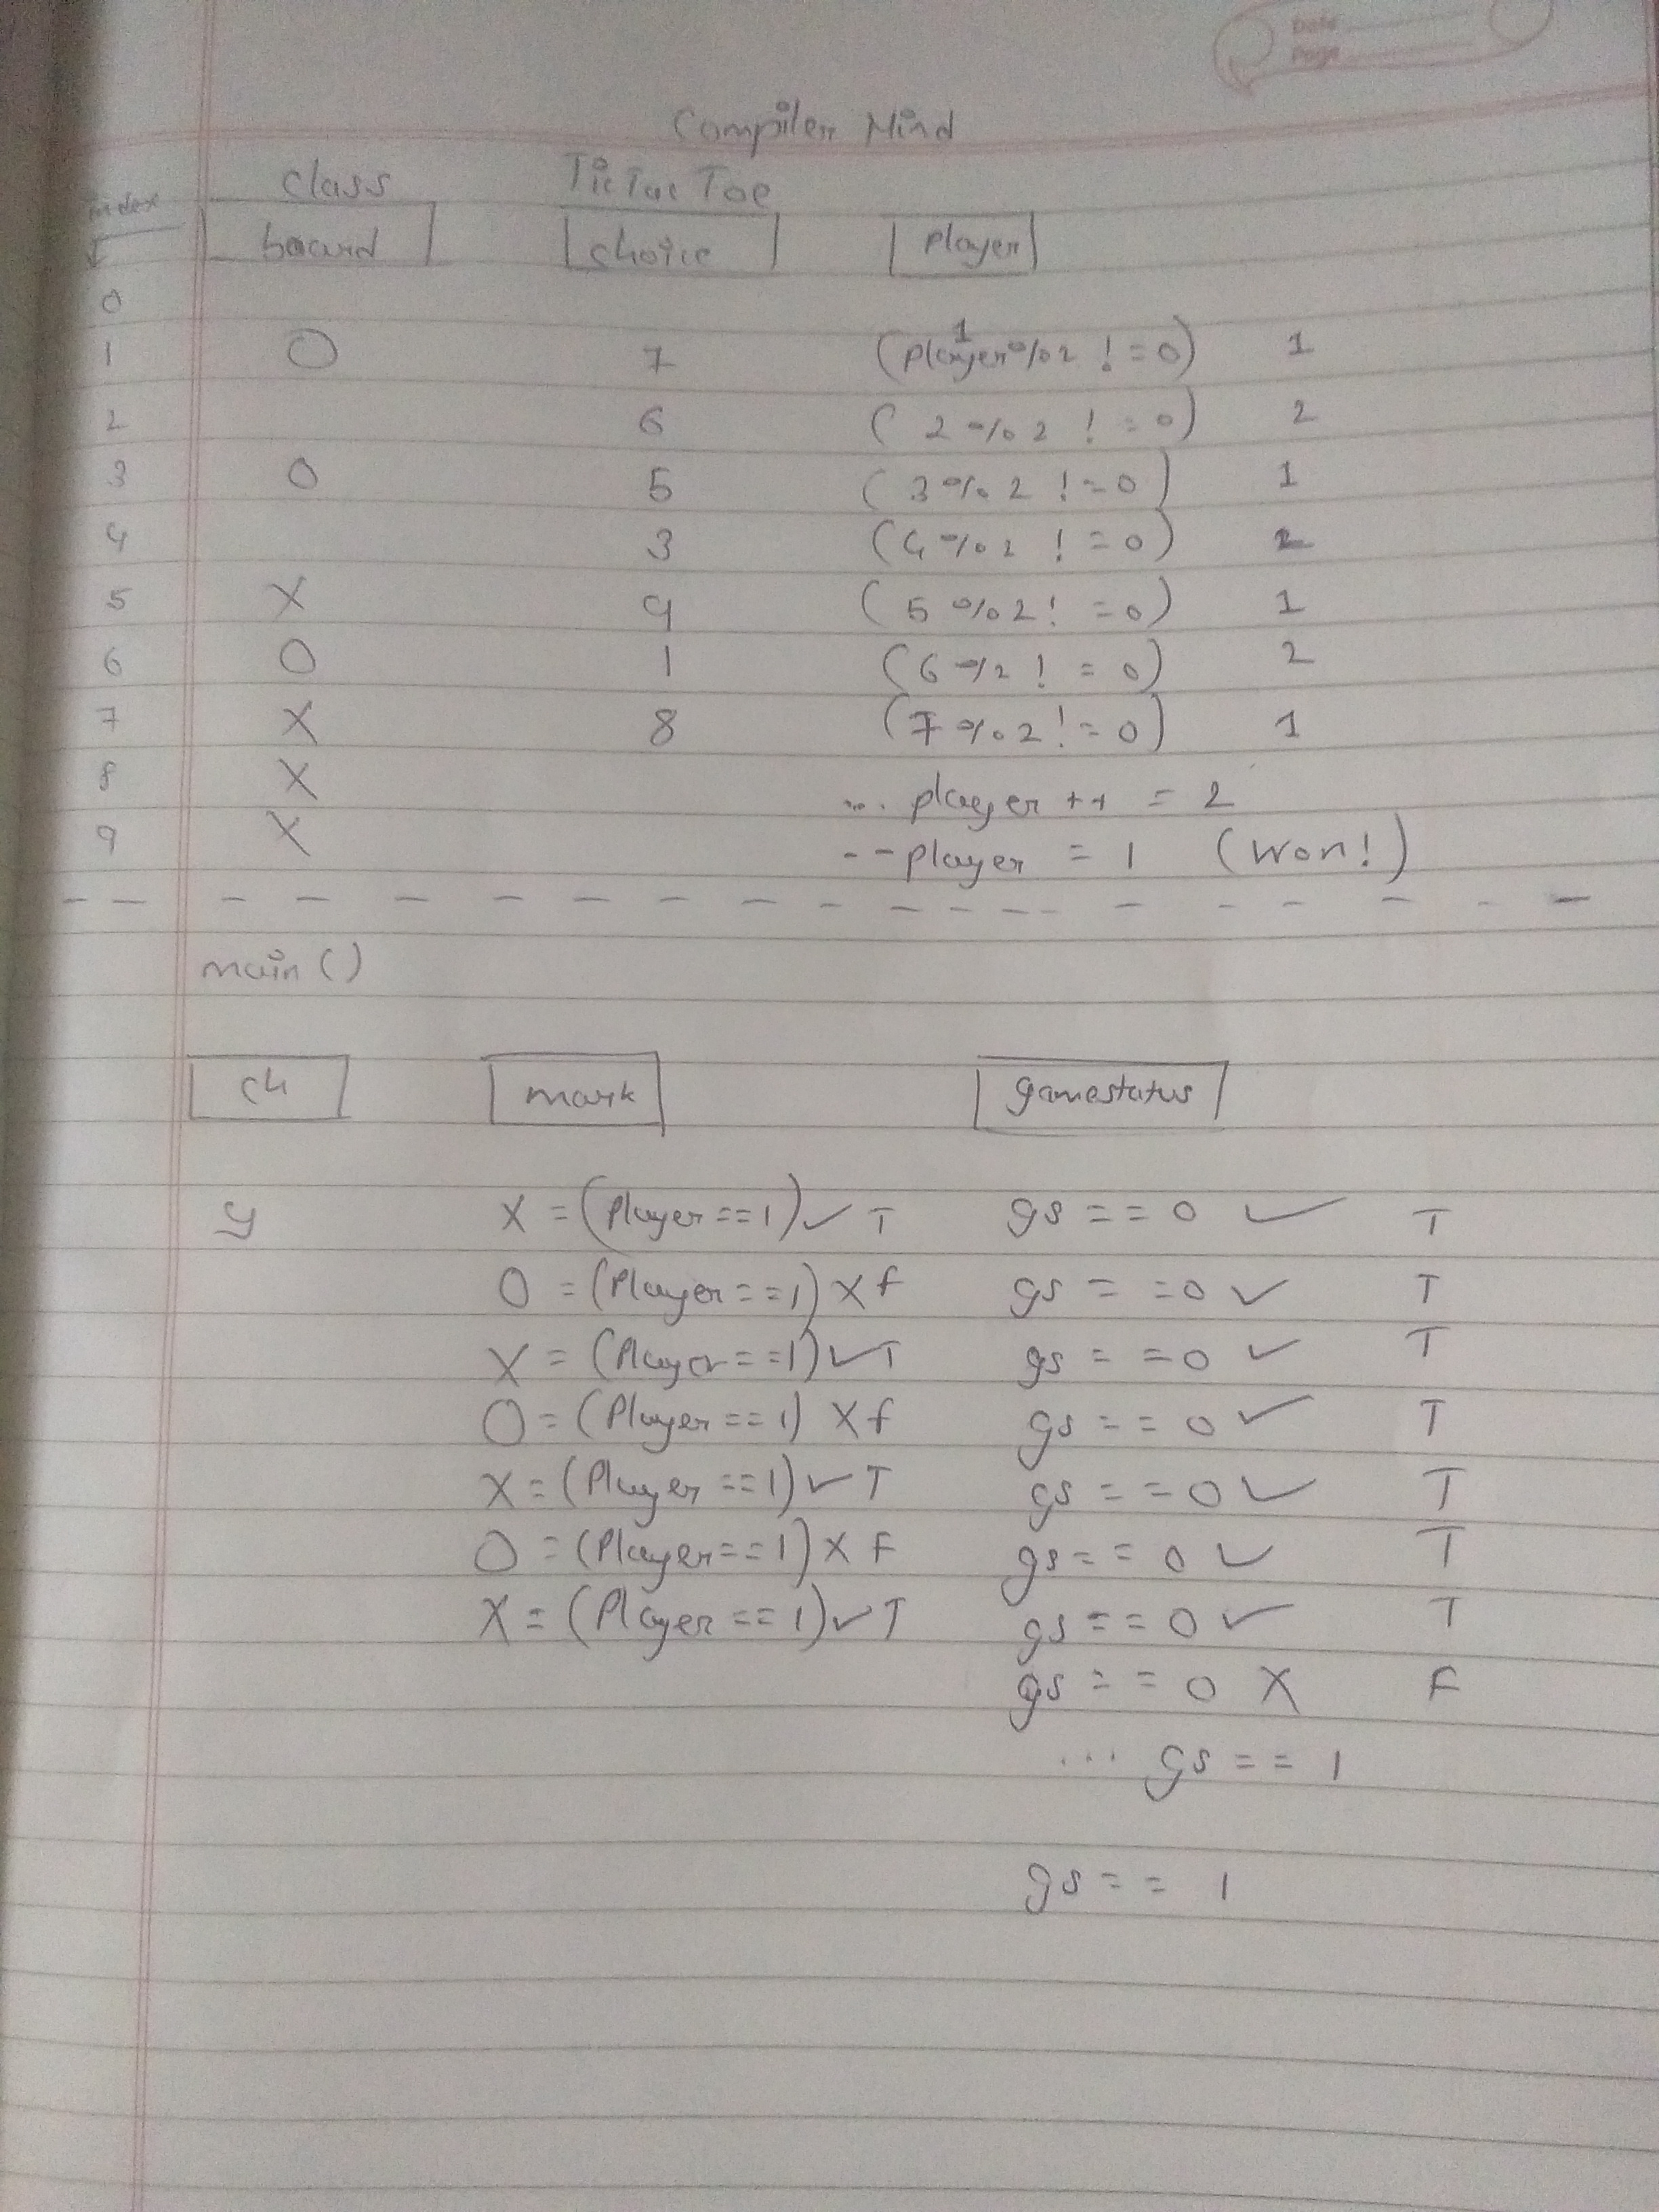 Date
Page
Compiler Mind
class TicTacToe
index
board choice player
0
1 O 7 (player%2 != 0) 1
1
2 6 (2%2 != 0) 2
3 O 5 (3%2 != 0) 1
4 3 (4%2 != 0) 2
5 X 9 (5%2 != 0) 1
6 O 1 (6%2 != 0) 2
7 X 8 (7%2 != 0) 1
8 X ... player++ = 2
9 X --player = 1 (Won!)
main()
ch mark gamestatus
y X = (Player==1) ✓ T gs == 0 ✓ T
O = (Player==1) X f gs == 0 ✓ T
X = (Player==1) ✓ T gs == 0 ✓ T
O = (Player==1) X f gs == 0 ✓ T
X = (Player==1) ✓ T gs == 0 ✓ T
O = (Player==1) X F gs == 0 ✓ T
X = (Player==1) ✓ T gs == 0 ✓ T
gs == 0 X F
... gs == 1
gs == 1